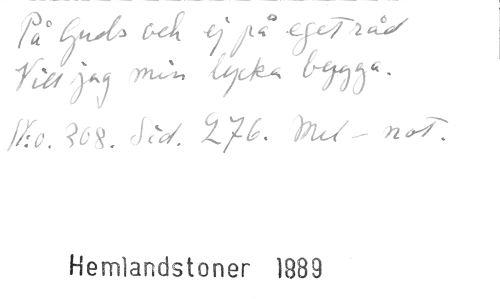 På Guds och ej på eget råd
Vill jag min lycka bygga.
N:o. 308. Sid. 276. Mel - not.
Hemlandstoner 1889